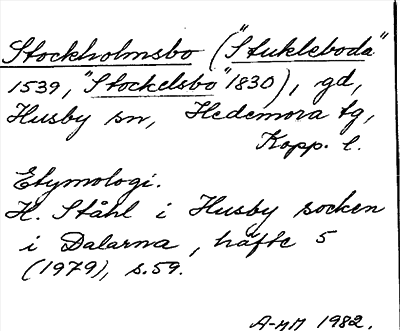 Stockholmsbo ("Stukleboda"
1539, "Stockelsbo" 1830), gd,
Husby sn, Hedemora tg,
Kopp. l.
Etymologi.
H. Ståhl i Husby socken
i Dalarna, häfte 5
(1979), s.59.
A-MM 1982.